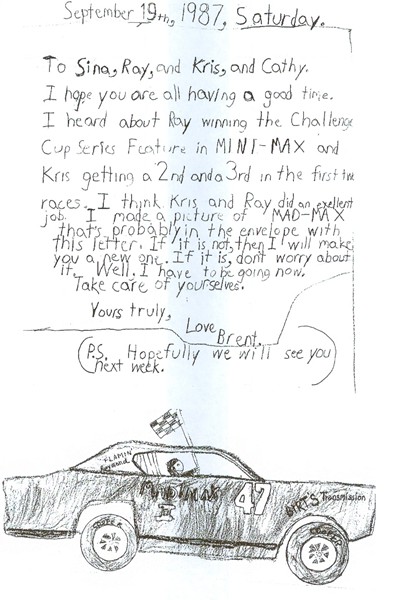 September 19th, 1987, Saturday.
To Sina, Ray, and Kris, and Cathy.
I hope you are all having a good time.
I heard about Ray winning the Challenge
Cup Series Feature in MINI-MAX and
Kris getting a 2nd and a 3rd in the first two
races. I think Kris and Ray did an exellent
job. I made a picture of MAD-MAX
that's probably in the envelope with
this letter. If it is not, then I will make
you a new one. If it is, don't worry about
it. Well. I have to be going now.
Take care of yourselves.
Yours truly,
Love
Brent.
(P.S. Hopefully we will see you
next week.)
FLAMIN
47
Transmission